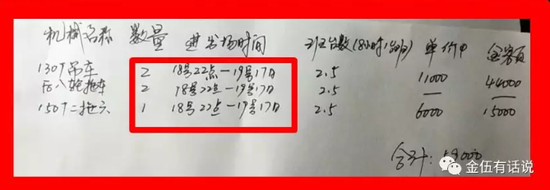 机械名称 数量 进出场时间 班台数(8小时1台班) 单价 金额
130T吊车 2 18号22点—19号17日 2.5 11000 44000
后八轮拖车 2 18号22点—19号17日 2.5 — —
150T二拖六 1 18号22点—19号17日 2.5 6000 15000
合计:
金伍有话说